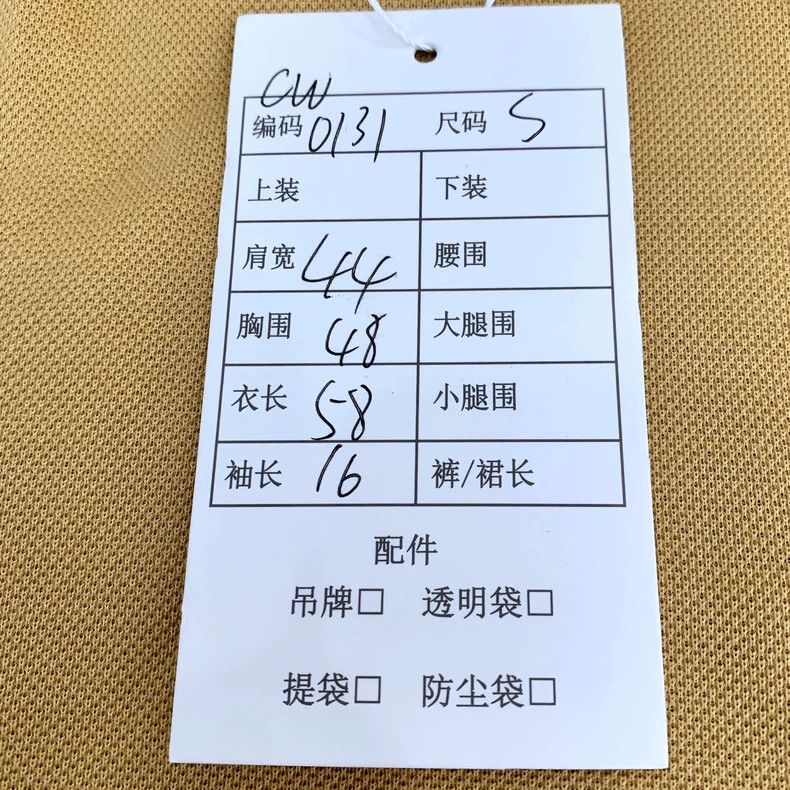 CW
编码 0131 尺码 S
上装 下装
肩宽 44 腰围
胸围 48 大腿围
衣长 58 小腿围
袖长 16 裤/裙长
配件
吊牌□ 透明袋□
提袋□ 防尘袋□